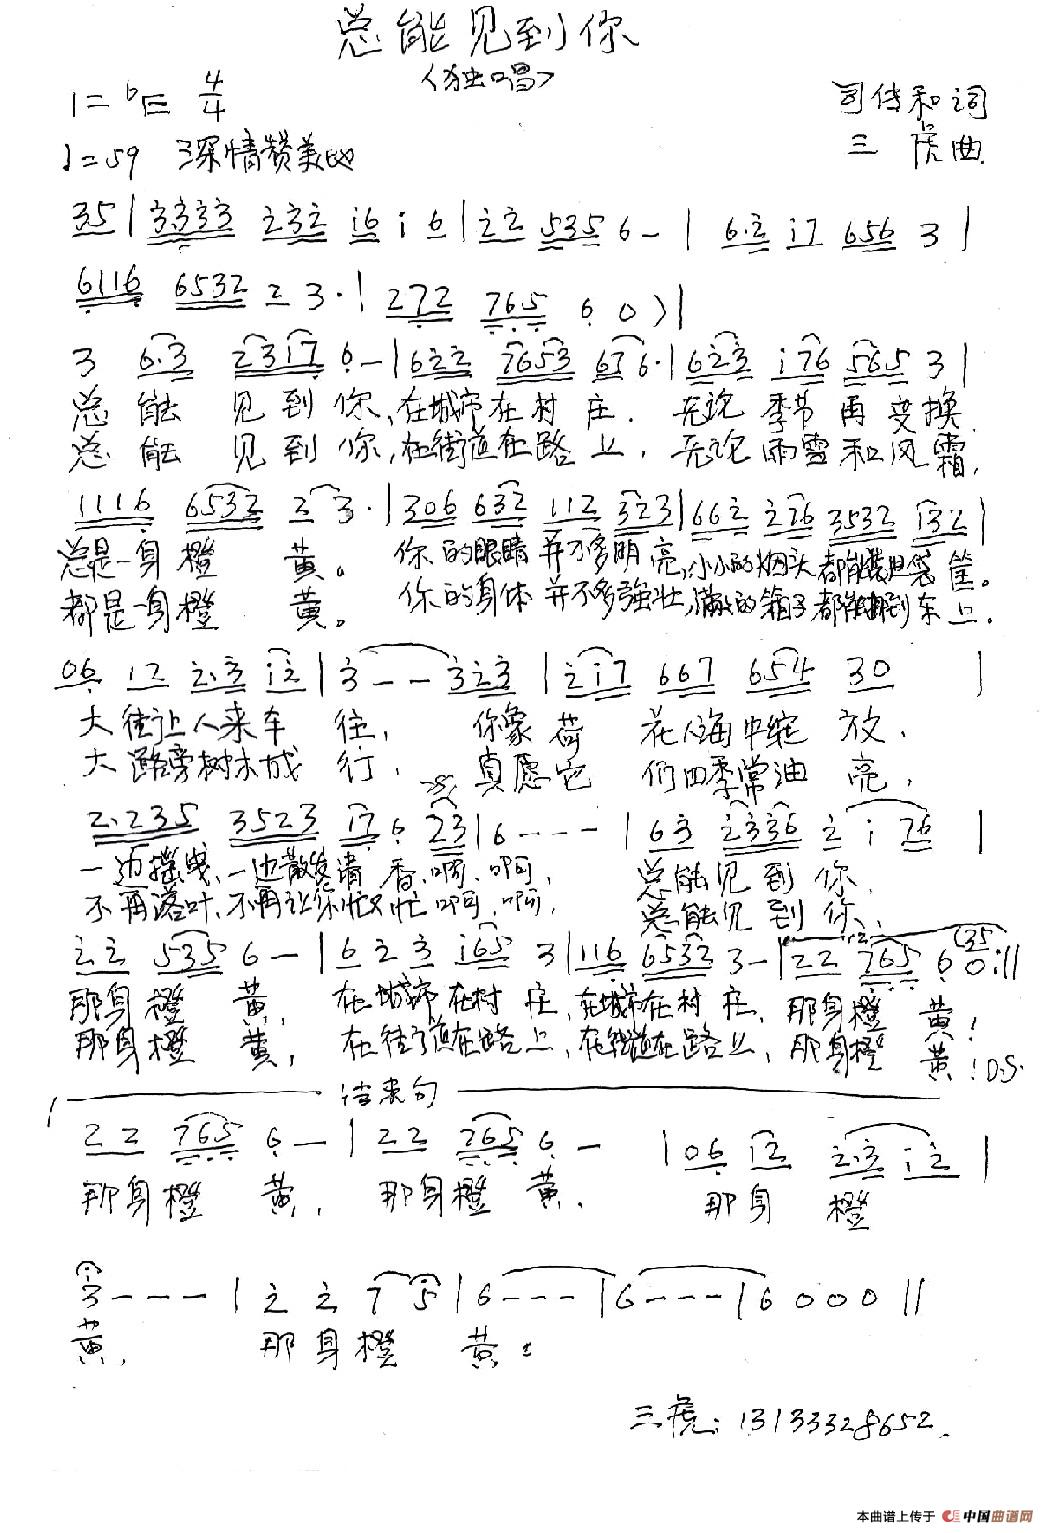 总能见到你
(独唱)
1=bE 4/4
司传和词
♩=59 深情赞美地
三虎曲
35|3333 232 16 1 6|22 535 6-|6·2 17 656 3|
6116 6532 2 3·|272 765 6 0)|
3 6·3 2317 6-|622 7653 676·|623 176 565 3|
总能见到你,在城市在村庄.无论季节再变换.
总能见到你,在街道在路上,无论雨雪和风霜,
1116 6532 2 3·|306 632 112 323|662 226 3532 132|
总是一身橙黄。你的眼睛并不多明亮,小小的烟头都能装进筐。
都是一身橙黄。你的身体并不多强壮,满满的箱子都能搬到车上.
06 12 2·3 12|3-- 323|217 667 654 30|
大街让人来车往,你象荷花人海中绽放.
大路旁树木成行.真愿它们四季常油亮,
2·235 3523 17 6 23|6---|63 2336 2 1 76|
一边摇曳、一边散发清香,啊,啊,总能见到你,
不再落叶,不再让你忙又忙啊,啊,总能见到你,
22 535 6-|6 2 3 165 3|116 6532 3-|22 765 6 0:||
(35
那身橙黄,在城市在村庄,在城市在村庄,那身橙黄!
那身橙黄,在街道在路上,在街道在路上,那身橙黄!D.S.
结束句
22 765 6-|22 765 6-|06 12 2·3 12|
那身橙黄,那身橙黄.那身橙
3---|2 2 7 5|6---|6---|6 0 0 0||
黄,那身橙黄!
三虎:13133328652.
本曲谱上传于 中国曲谱网